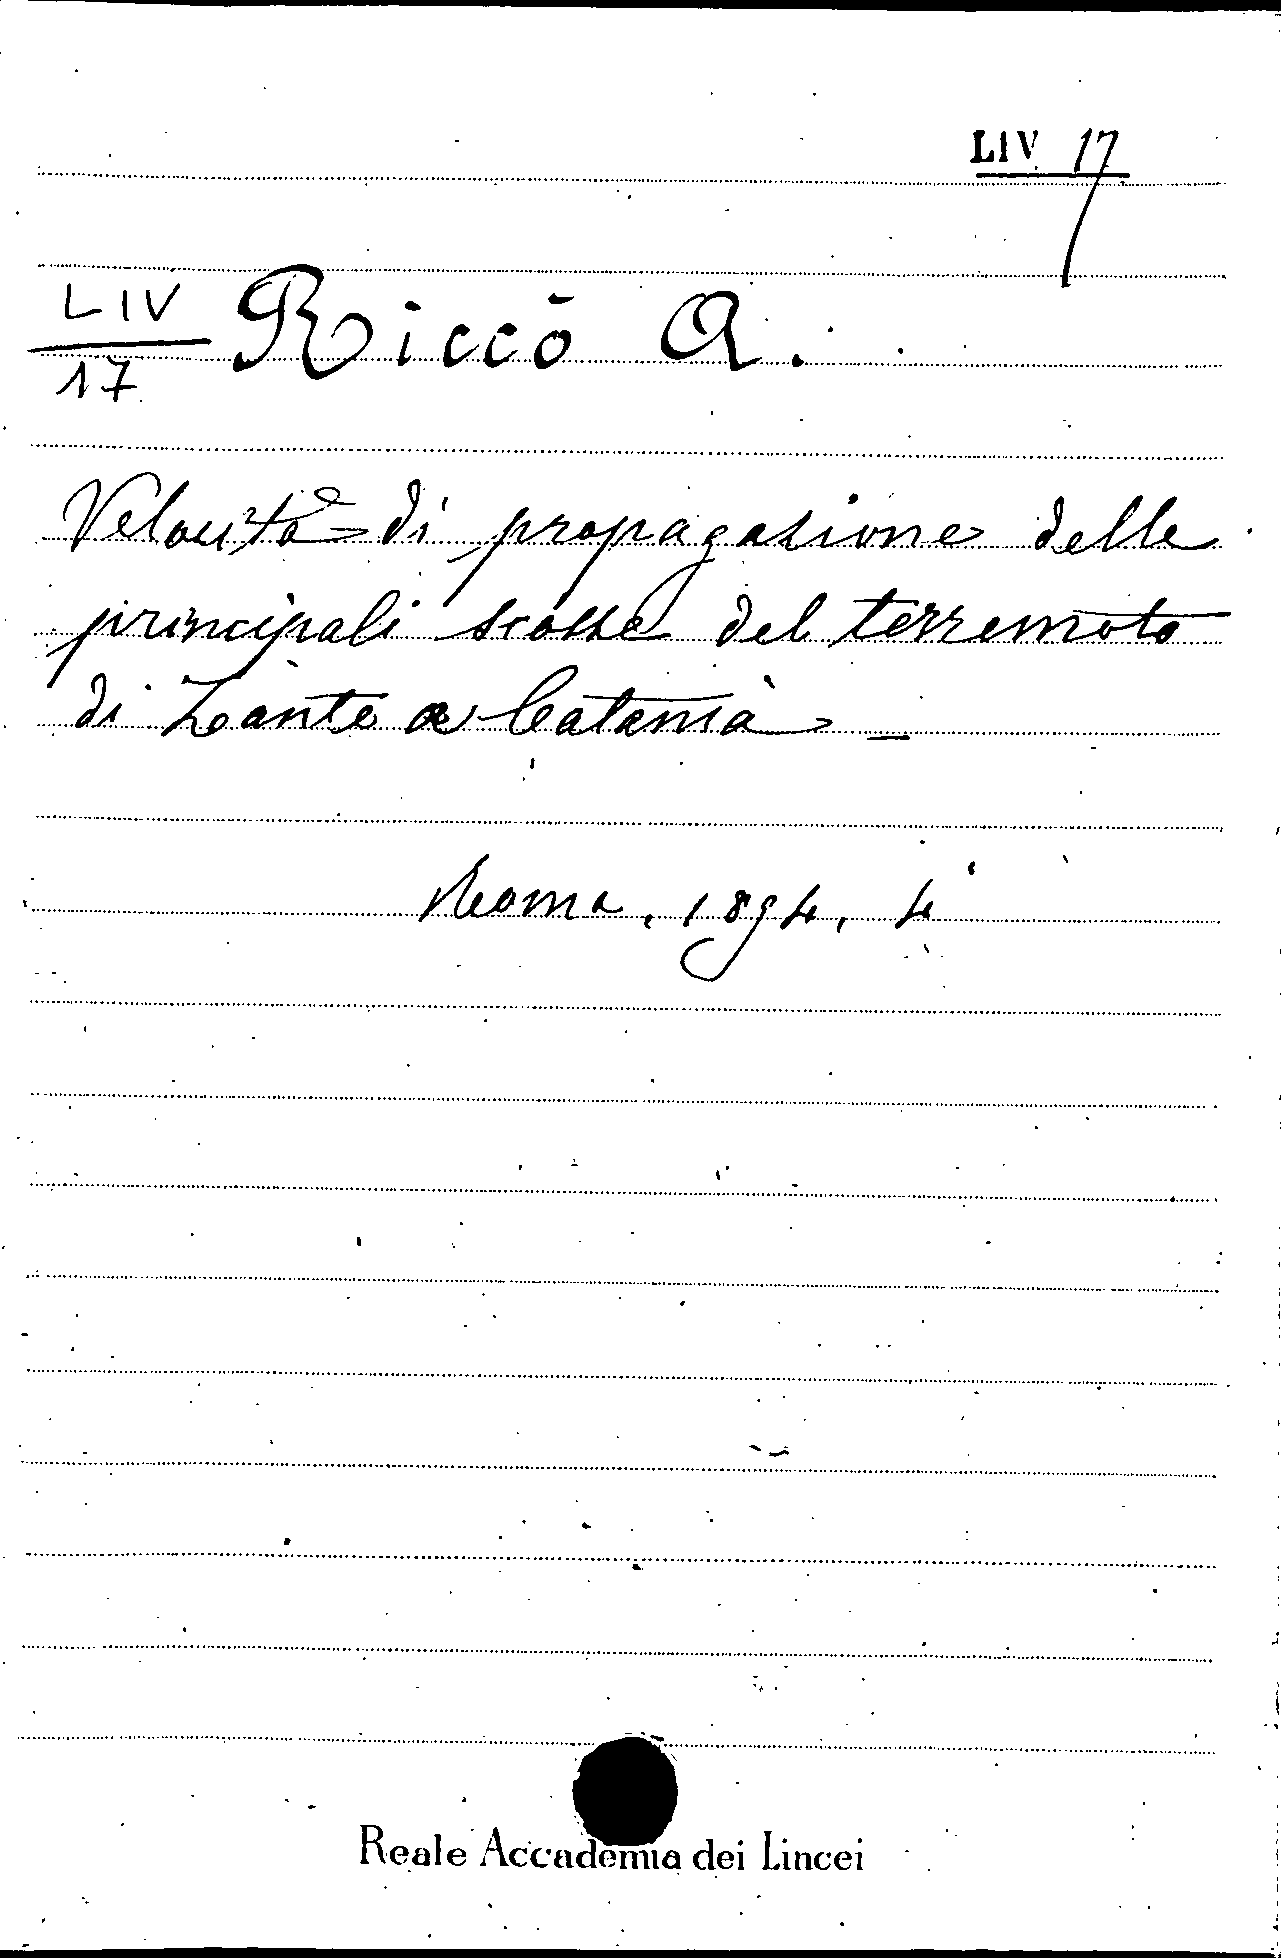 LIV 17
LIV Riccò A.
17
Velocità di propagazione delle
principali scosse del terremoto
di Zante a Catania -
Roma, 1894, 4°
Reale Accademia dei Lincei